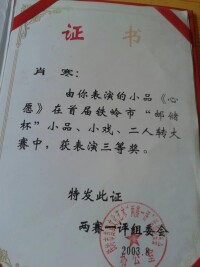 证 书
肖寒：
由你表演的小品《心
愿》在首届铁岭市“邮储
杯”小品、小戏、二人转大
赛中，获表演三等奖。
特发此证
两赛一评组委会
2003.8